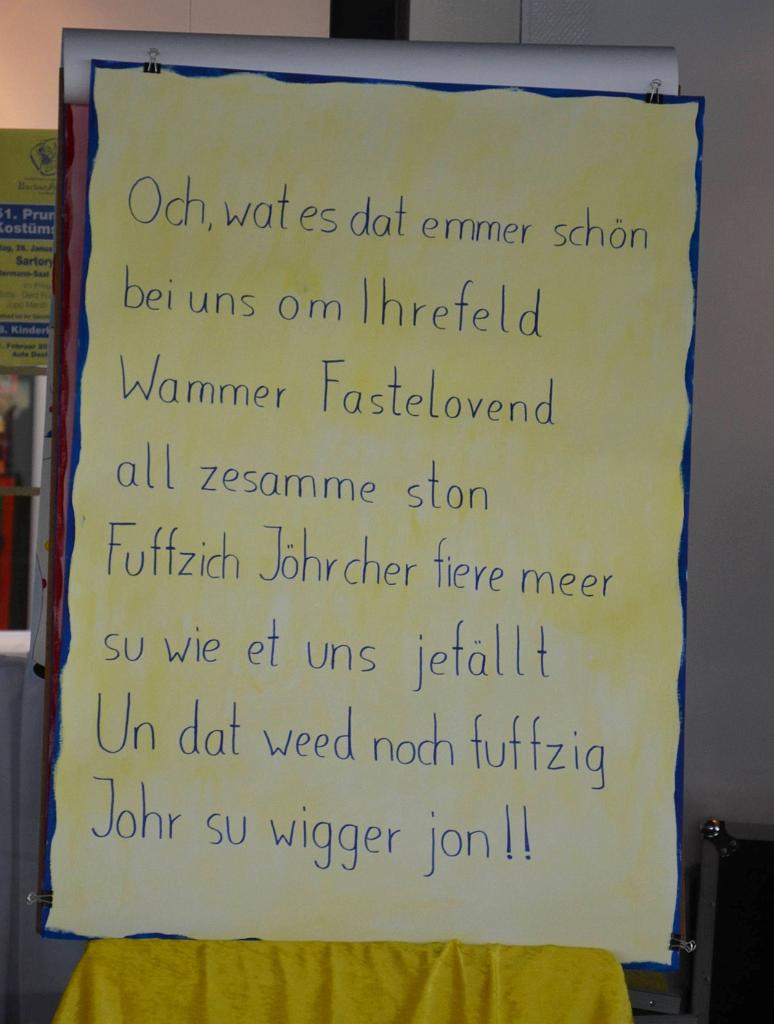 Och, wat es dat emmer schön
bei uns om Ihrefeld
Wammer Fastelovend
all zesamme ston
Fuffzich Jöhrcher fiere meer
su wie et uns jefällt
Un dat weed noch fuffzig
Johr su wigger jon!!
51. Prun
Kostüms
Sartory
3. Kinder